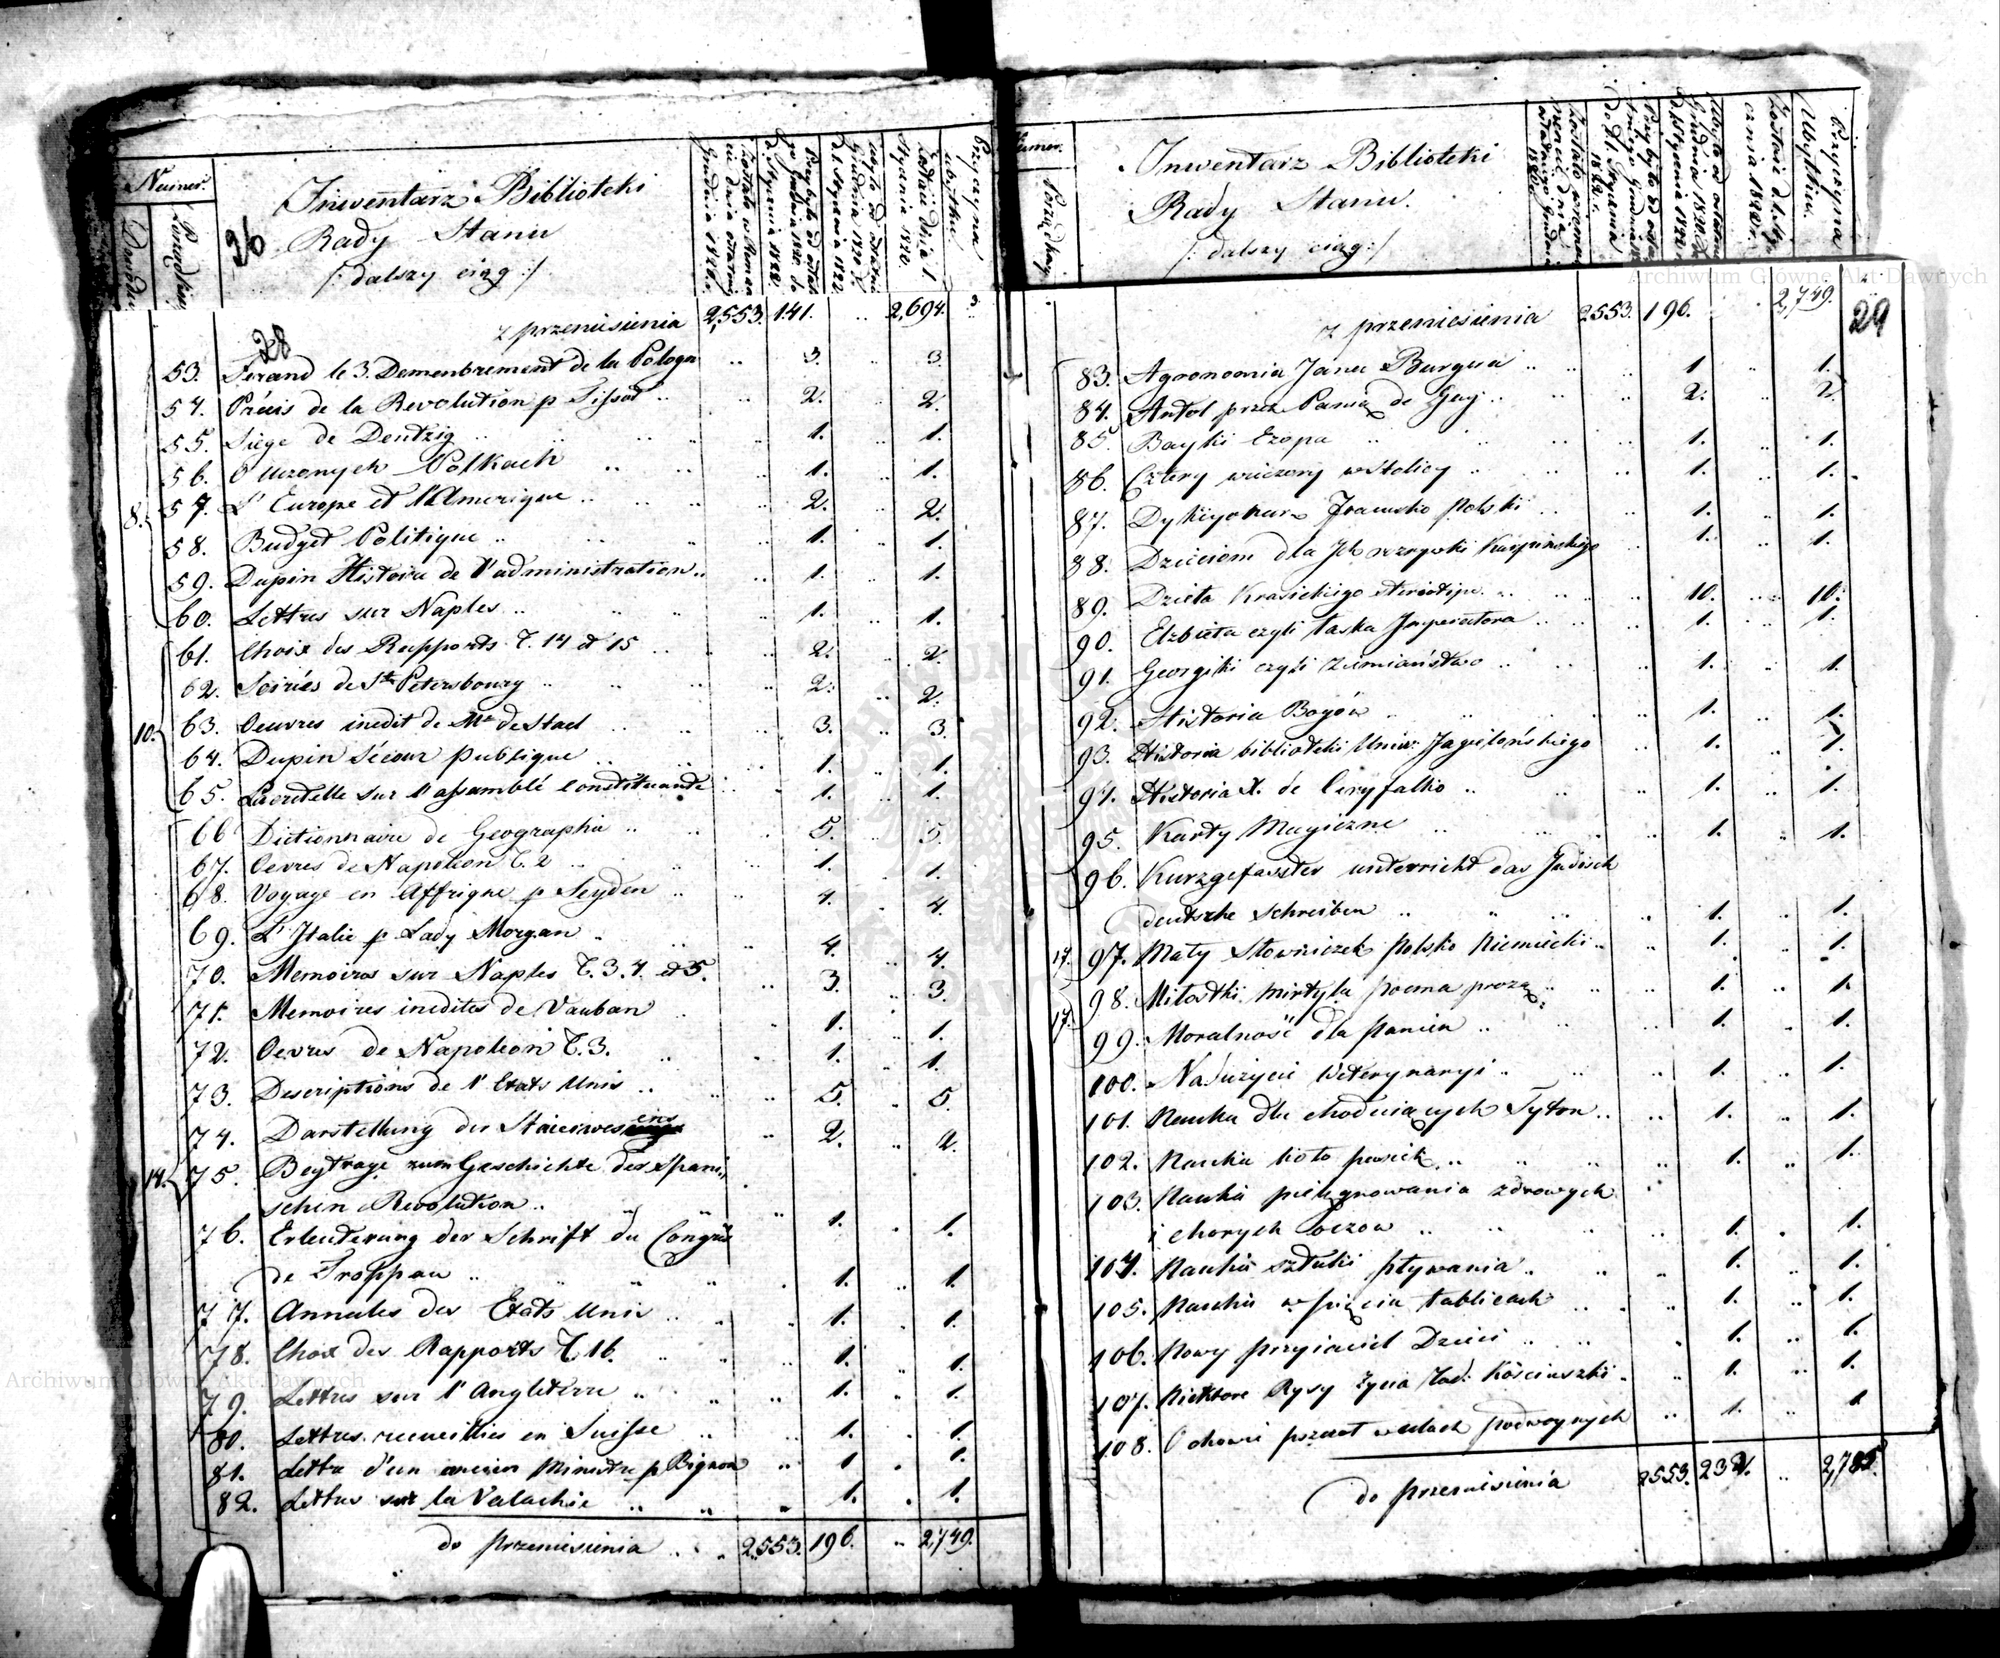 Numer.
Porządku
26
Inwentarz Biblioteki
Rady Stanu
/: dalszy ciąg :/
28
z przeniesienia 2,553. 141. .. 2,694.
53. Ferand le 3. Demenbrement de la Pologn .. 3. .. 3.
54. Précis de la Revolution p Tissot .. .. 2. .. 2.
55. Siége de Dentzig .. .. .. .. 1. .. 1.
56. O Uczonych Polkach .. .. 1. .. 1.
8. 57. L'Europe et l'Amerique .. .. 2. .. 2.
58. Budget Politique .. .. .. 1. .. 1.
59. Dupin Histoire de l'administration .. .. 1. .. 1.
60. Lettres sur Naples .. .. .. 1. 1.
61. Choix des Rapports T. 14 et 15 .. .. 2. .. 2.
62. Soirées de St Petersbourg .. .. .. .. 2. .. 2.
10. 63. Oeuvres inedit de Me de Stael .. .. .. 3. 3.
64. Dupin Sécour publique .. .. 1. .. 1.
65. Lacretelle sur l'assamblé constituante .. 1. .. 1.
66 Dictionnaire de Geographie .. .. .. 5. .. 5.
67. Oevres de Napoleon T. 2 .. .. .. 1. .. 1.
68. Voyage en Affrique p Leyden .. .. 4. .. 4.
69. L'Italie p Lady Morgan .. .. .. 4. .. 4.
70. Memoires sur Naples T. 3. 4. et 5. .. 3. .. 3.
71. Memoires inedites de Vauban .. .. 1. .. 1.
72. Oevres de Napoleon T. 3. .. .. 1. 1.
73. Descriptions de l'Etats Unis .. .. .. 5. .. 5.
74. Darstellung des Steierwesens .. 2. .. 2.
14. 75. Beytrage zum Geschichte der Spani,,
schen Revolution .. .. .. .. 1. . 1.
76. Erleuterung der Schrift du Congrés
de Troppau .. .. .. .. . 1. .. 1.
77. Annales des Etats Unis .. .. . 1. . 1.
78. Choix des Rapports T. 16. .. .. .. 1. .. 1.
79. Lettres sur l'Angleterre .. .. .. 1. .. 1.
80. Lettres recueillies en Suisse .. .. 1. .. 1.
81. Lettre d'un ancien Ministre p Bignon .. 1 . 1.
82. Lettres sur la Valachie .. .. .. 1. . 1.
do przeniesienia .. . 2553. 196. .. 2,749.
Numer.
Porządkow
Inwentarz Biblioteki
Rady Stanu.
/: dalszy ciąg :/
Przyczyna
29
z przeniesienia 2553. 196. . 2,749.
83. Agronomia Jana Burgera .. .. .. 1. .. 1.
84. Antol przez Panią de Gay .. .. .. 2. .. 2.
85. Bayki Ezopa .. .. .. .. 1. .. 1.
86. Cztery wieczory w Stolicy .. .. .. 1. .. 1.
87. Dykcyonarz Francusko Polski .. .. 1. .. 1.
88. Dzieciom dla Ich rozrywki Karpińskiego .. 1. .. 1.
89. Dzieła Krasickiego stereotipe .. .. .. 10. .. 10.
90. Elżbieta czyli Łaska Imperatora .. .. .. 1. .. 1.
91. Georgiki czyli Ziemiaństwo .. .. .. 1. .. 1.
92. Historia Bogów .. .. .. .. 1. .. 1.
93. Historia biblioteki Uniw: Jagielońskiego .. 1. .. 1.
94. Historia X. de Ceryfalko .. .. .. 1. .. 1.
95. Karty Magiczne .. .. .. .. 1. .. 1.
96. Kurzgefasster unterricht das Judisch
deutsche Schreiben .. .. .. .. 1. .. 1.
17. 97. Mały Słowniczek polsko Niemiecki .. .. 1. .. 1.
98. Miłostki Mirtyla poema prozą .. .. .. 1. .. 1.
17. 99. Moralność dla Panien .. .. .. 1. .. 1.
100. Nadużycie Weterynaryi .. .. .. 1. .. 1.
101. Nauka dla choduiących Tyton .. .. 1. .. 1.
102. Nauka koło pasiek .. .. .. .. 1. .. 1.
103. Nauka pielęgnowania zdrowych
i chorych Oczow .. .. .. .. 1. . 1.
104. Nauka sztuki pływania .. .. .. 1. .. 1.
105. Nauka w pięciu tablicach .. . .. 1. .. 1.
106. Nowy przyiaciel Dzieci .. .. . 1. .. 1.
107. Niektóre Rysy życia Tad: Kościuszki . . 1. .. 1.
108. O chowie pszczół w ulach podwoynych .. 1. .. 1.
do przeniesienia 2553. 232. .. 2,785.
Archiwum Główne Akt Dawnych
Archiwum Główne Akt Dawnych